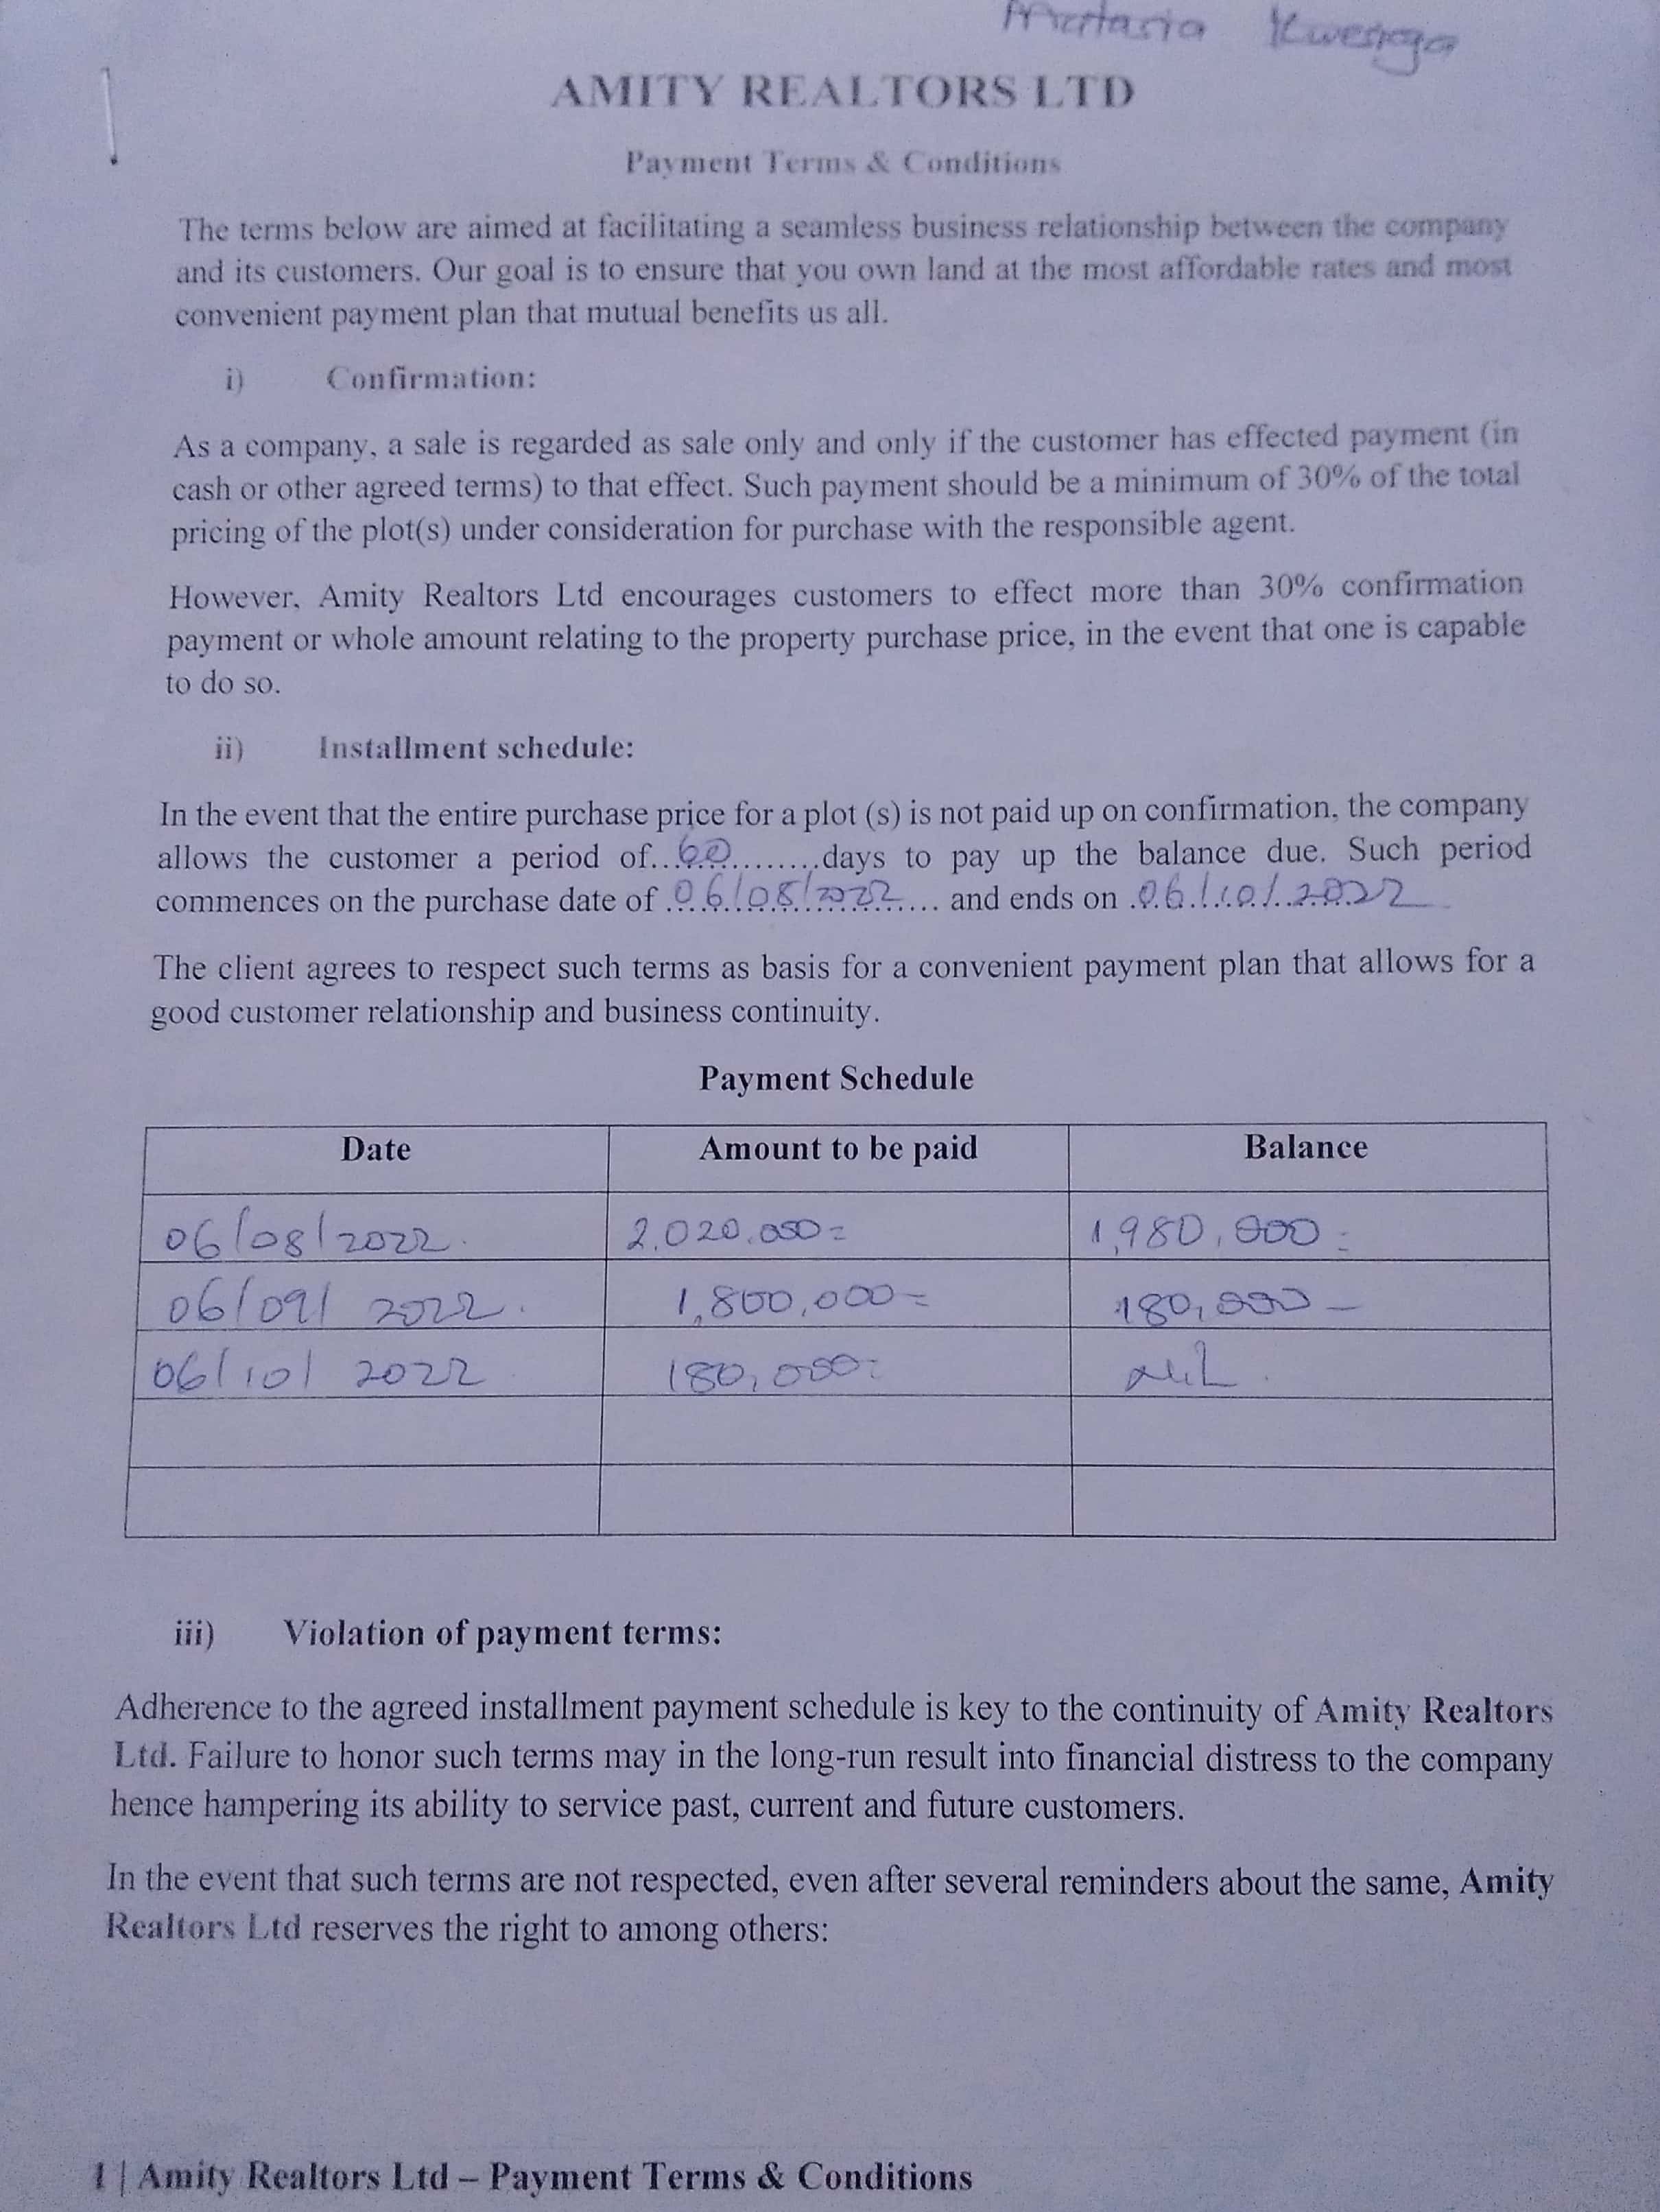 Matasia Kwesiga
AMITY REALTORS LTD
Payment Terms & Conditions
The terms below are aimed at facilitating a seamless business relationship between the company
and its customers. Our goal is to ensure that you own land at the most affordable rates and most
convenient payment plan that mutual benefits us all.
i) Confirmation:
As a company, a sale is regarded as sale only and only if the customer has effected payment (in
cash or other agreed terms) to that effect. Such payment should be a minimum of 30% of the total
pricing of the plot(s) under consideration for purchase with the responsible agent.
However, Amity Realtors Ltd encourages customers to effect more than 30% confirmation
payment or whole amount relating to the property purchase price, in the event that one is capable
to do so.
ii) Installment schedule:
In the event that the entire purchase price for a plot (s) is not paid up on confirmation, the company
allows the customer a period of..60........days to pay up the balance due. Such period
commences on the purchase date of 06/08/2022... and ends on .06/10/2022
The client agrees to respect such terms as basis for a convenient payment plan that allows for a
good customer relationship and business continuity.
Payment Schedule
Date Amount to be paid Balance
06/08/2022. 2,020,000= 1,980,000=
06/09/2022. 1,800,000= 180,000-
06/10/2022 180,000= Nil.
iii) Violation of payment terms:
Adherence to the agreed installment payment schedule is key to the continuity of Amity Realtors
Ltd. Failure to honor such terms may in the long-run result into financial distress to the company
hence hampering its ability to service past, current and future customers.
In the event that such terms are not respected, even after several reminders about the same, Amity
Realtors Ltd reserves the right to among others:
1 | Amity Realtors Ltd – Payment Terms & Conditions